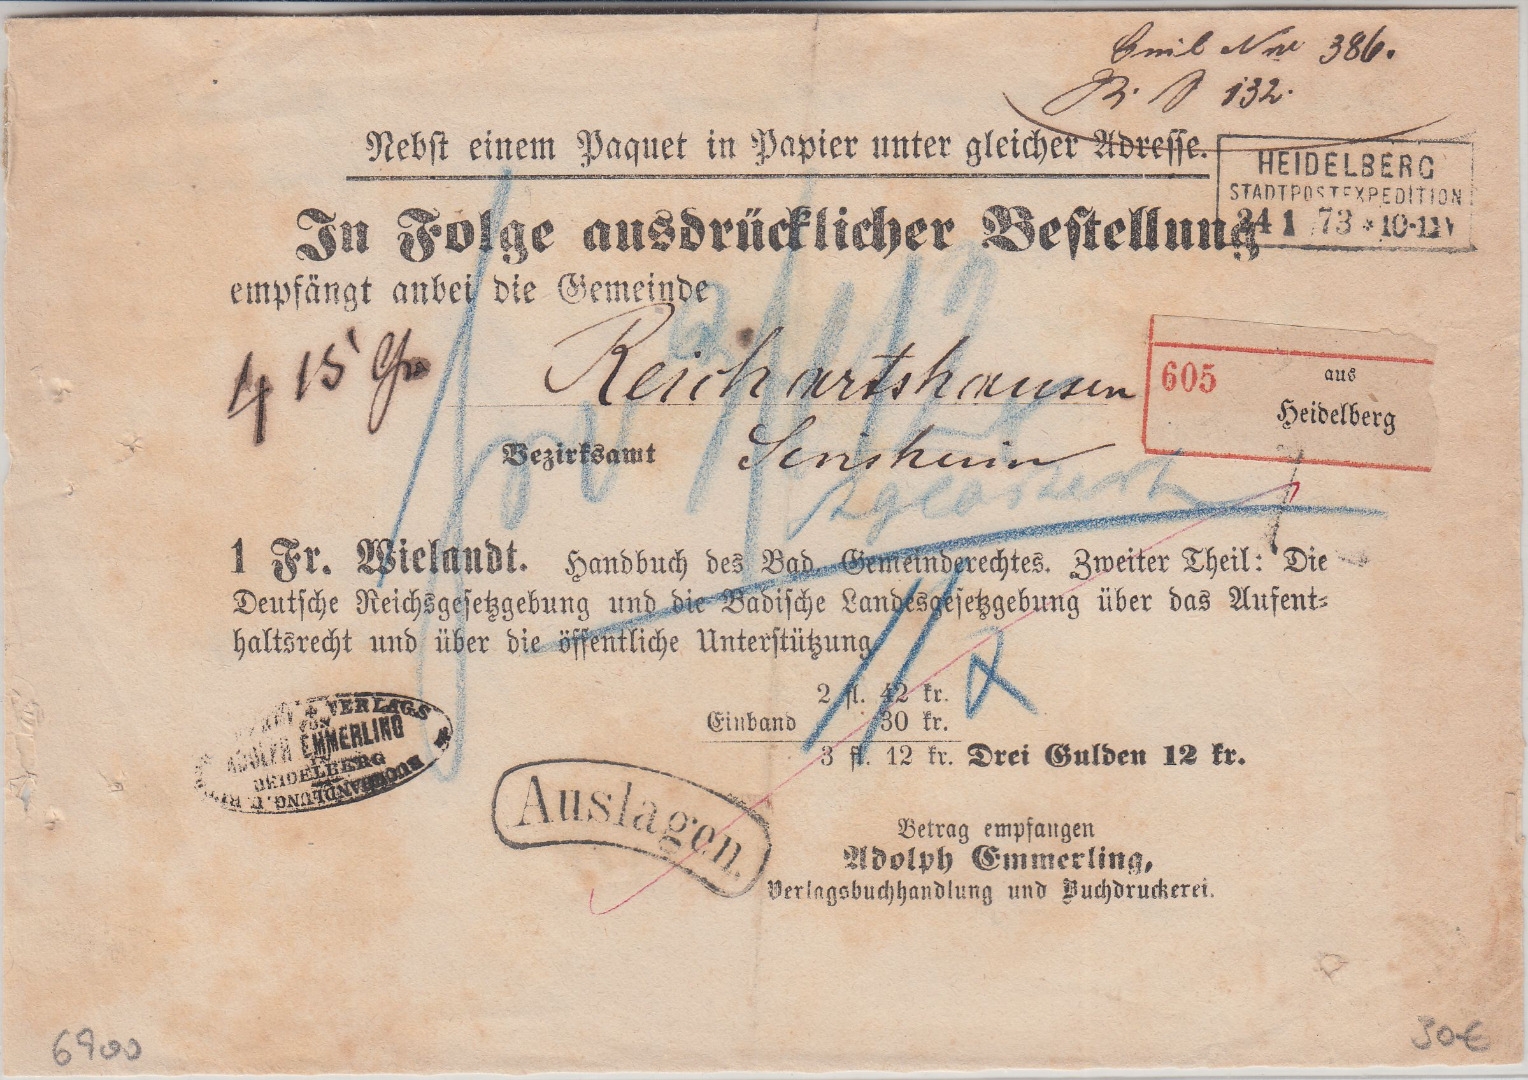 386.
132.
Nebst einem Paquet in Papier unter gleicher Adresse.
HEIDELBERG
STADTPOSTEXPEDITION
24 1 73 * 10-11V
In Folge ausdrücklicher Bestellung
empfängt anbei die Gemeinde
4 15
Reichartshausen
605 aus
Heidelberg
Bezirksamt Sinsheim
1 Fr. Wielandt. Handbuch des Bad. Gemeinderechtes. Zweiter Theil: Die
Deutsche Reichsgesetzgebung und die Badische Landesgesetzgebung über das Aufent-
haltsrecht und über die öffentliche Unterstützung
2 fl. 42 kr.
Einband 30 kr.
3 fl. 12 kr. Drei Gulden 12 kr.
VERLAGS
VON
ADOLPH EMMERLING
IN
HEIDELBERG
BUCHHANDLUNG
Auslagen.
Betrag empfangen
Adolph Emmerling,
Verlagsbuchhandlung und Buchdruckerei.
6900
30€